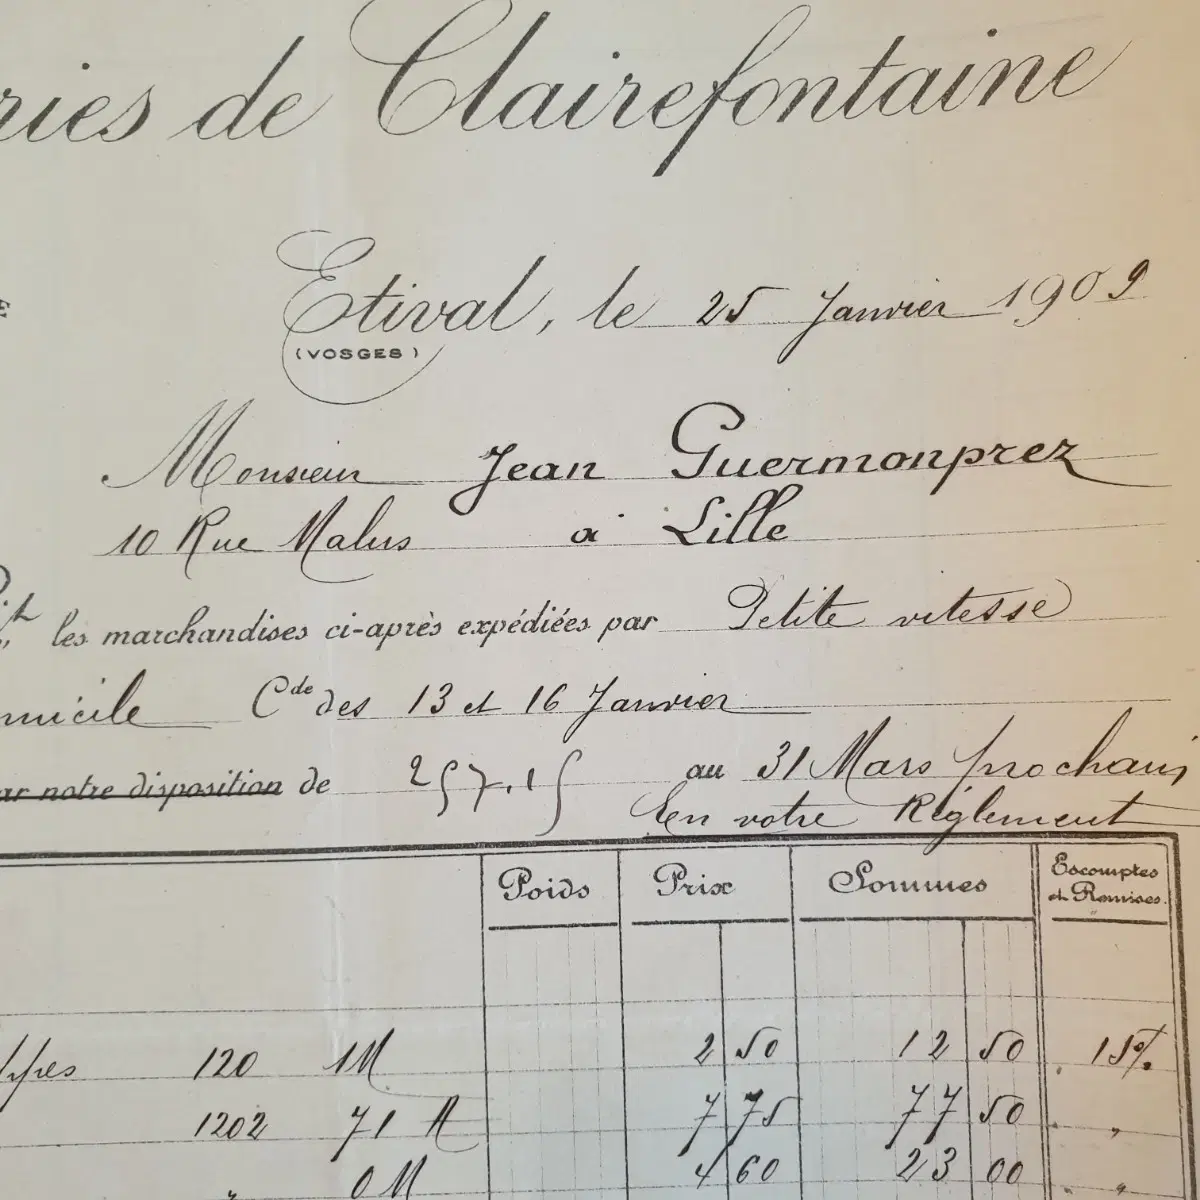 ries de Clairefontaine
Etival, le 25 Janvier 1909
(VOSGES)
Monsieur Jean Guermonprez
10 Rue Malus à Lille
les marchandises ci-après expédiées par Petite vitesse
micile Cde des 13 et 16 Janvier
ar notre disposition de 257.15 au 31 Mars prochain
En votre Règlement
Poids Prix Sommes Escomptes et Remises.
ppes 120 1M 2 50 12 50 15%
1202 71 A 7 75 77 50 "
" 0M 4 60 23 00 "